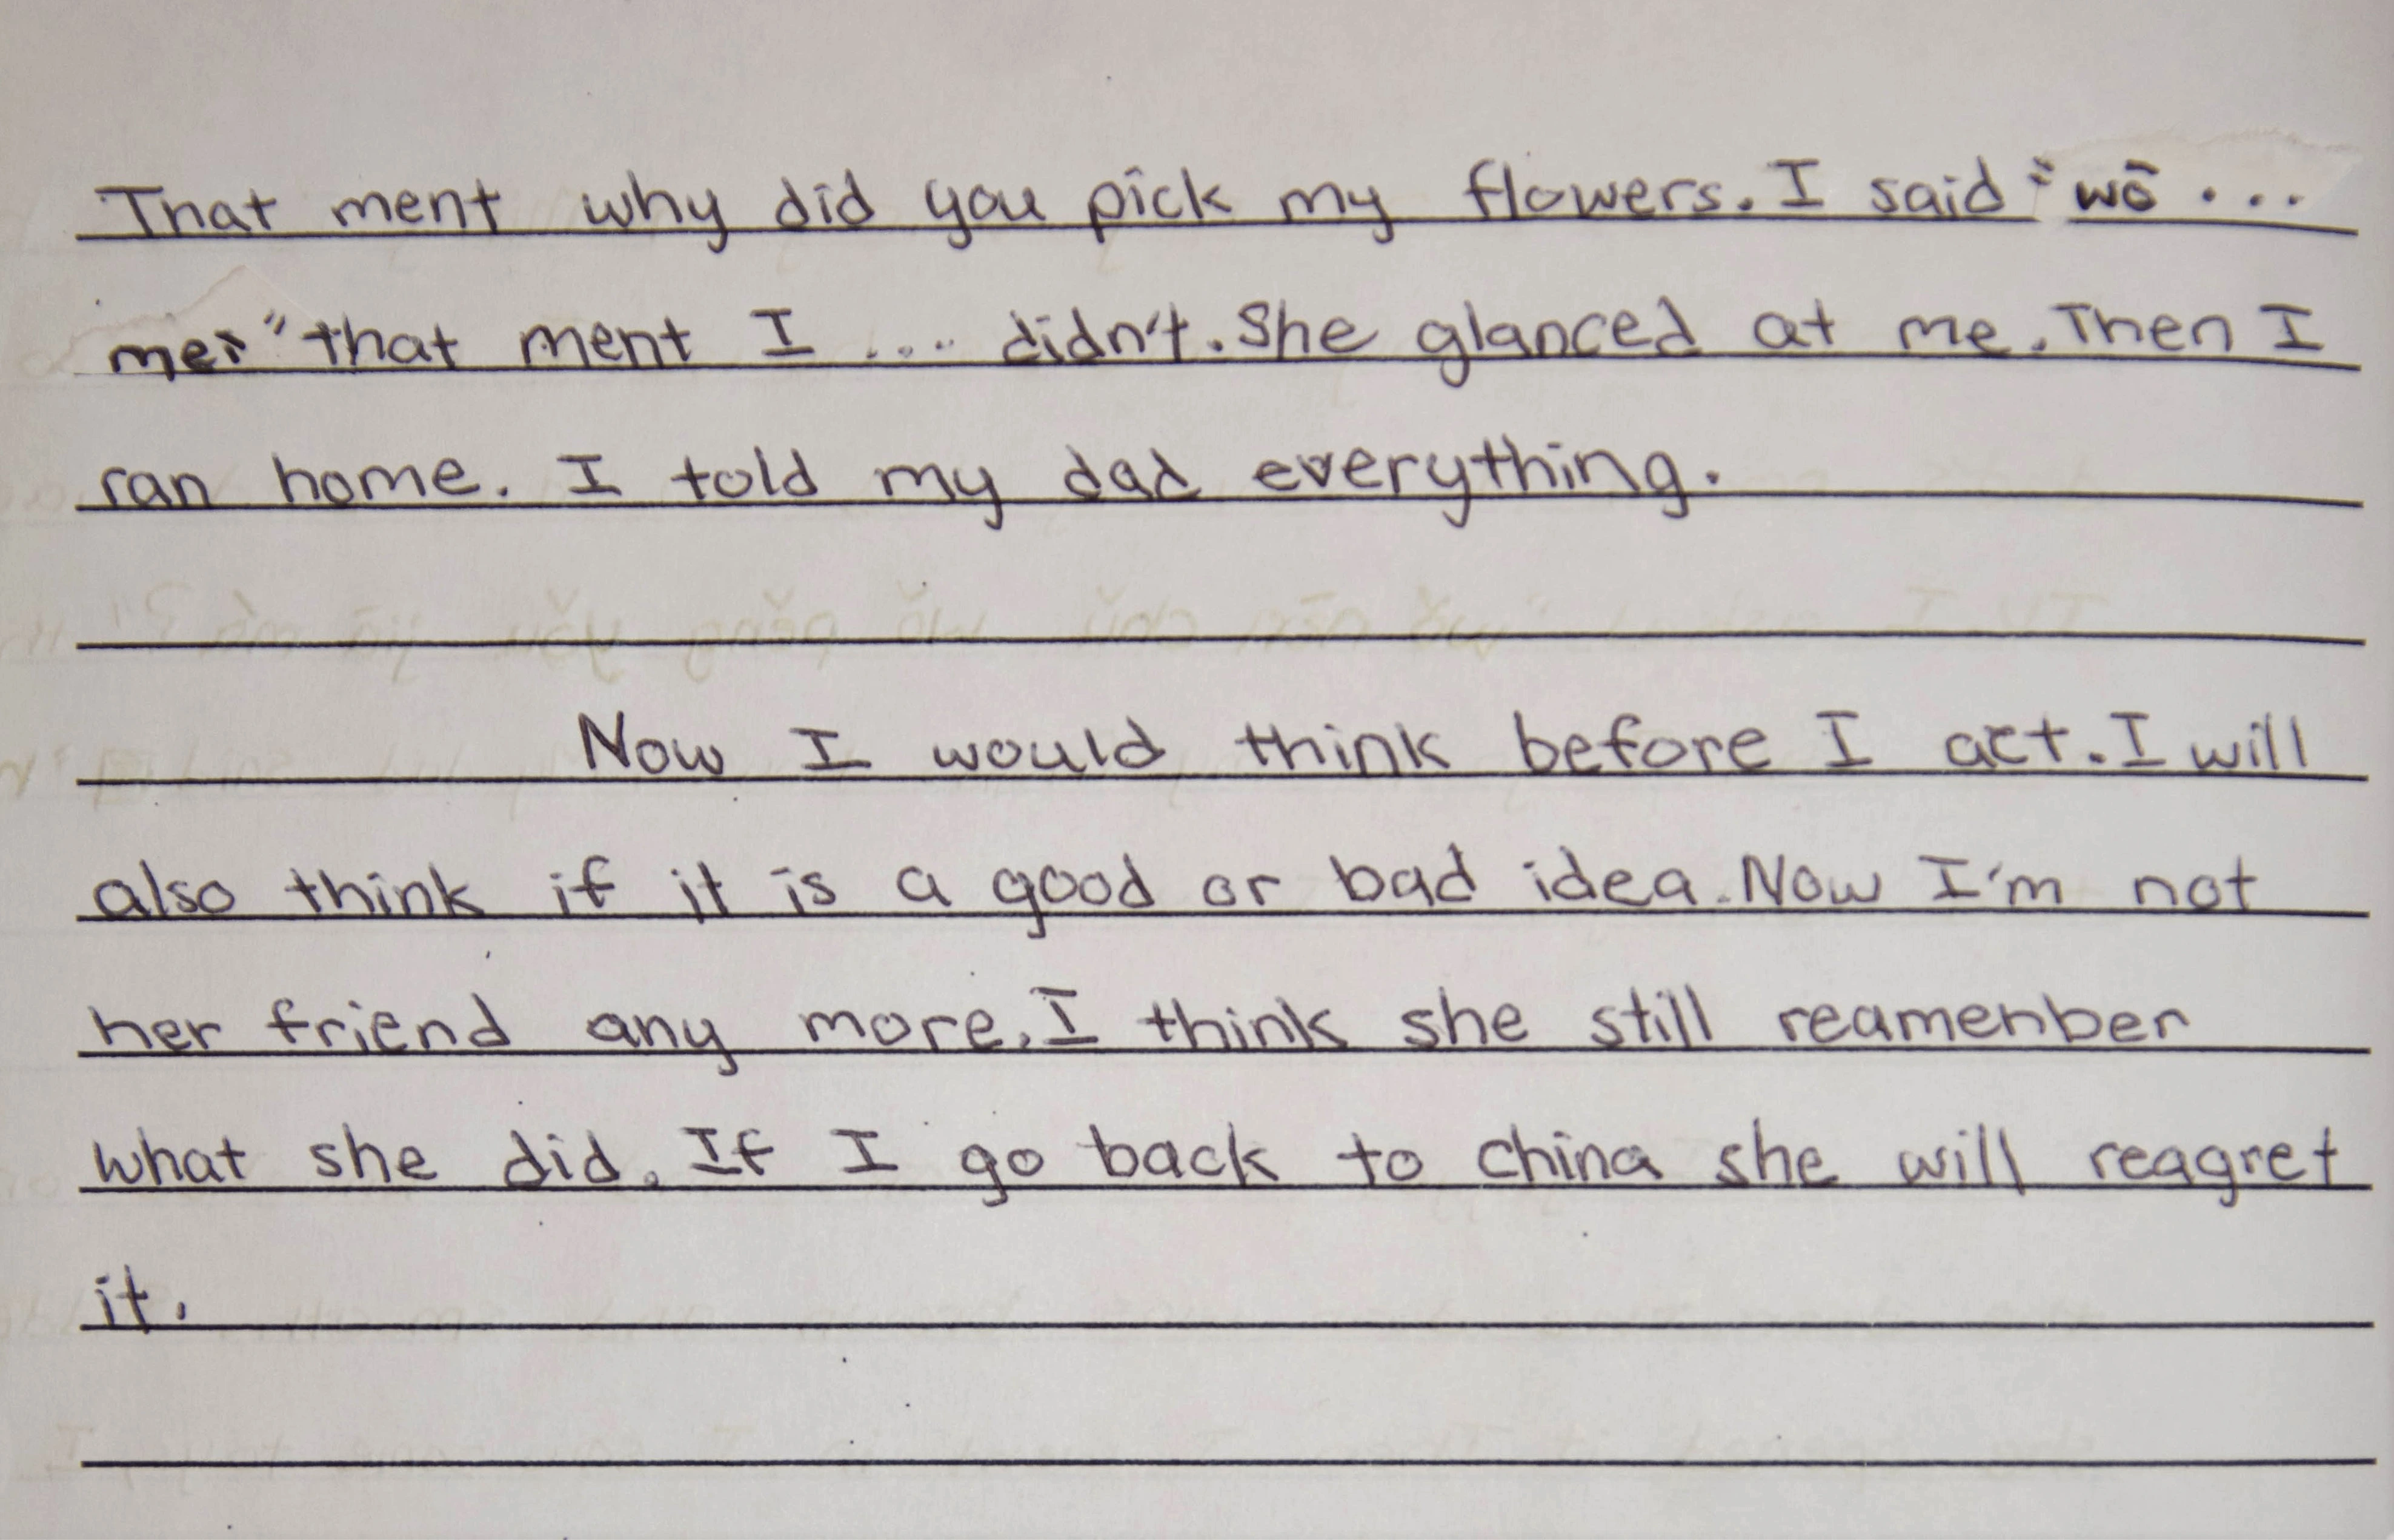 That ment why did you pick my flowers. I said "wō ...
mei" that ment I .... didn't. She glanced at me. Then I
ran home. I told my dad everything.
Now I would think before I act. I will
also think if it is a good or bad idea. Now I'm not
her friend any more. I think she still reamenber
what she did. If I go back to china she will reagret
it.